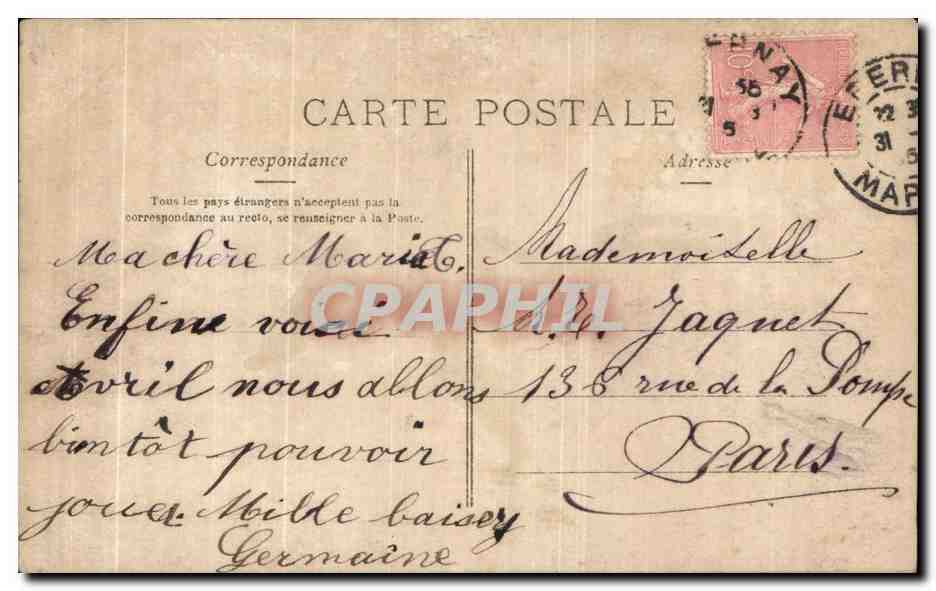 CARTE POSTALE
Correspondance
Tous les pays étrangers n'acceptent pas la
correspondance au recto, se renseigner à la Poste.
Ma chère Mariet.
Enfine voici
Avril nous allons
bientôt pouvoir
jouer Mille baisey
Germaine
Adresse
Mademoiselle
Jaquet
138 rue de la Pompe
Paris.
EPERNAY
EPERN
MAR
31
CPAPHIL